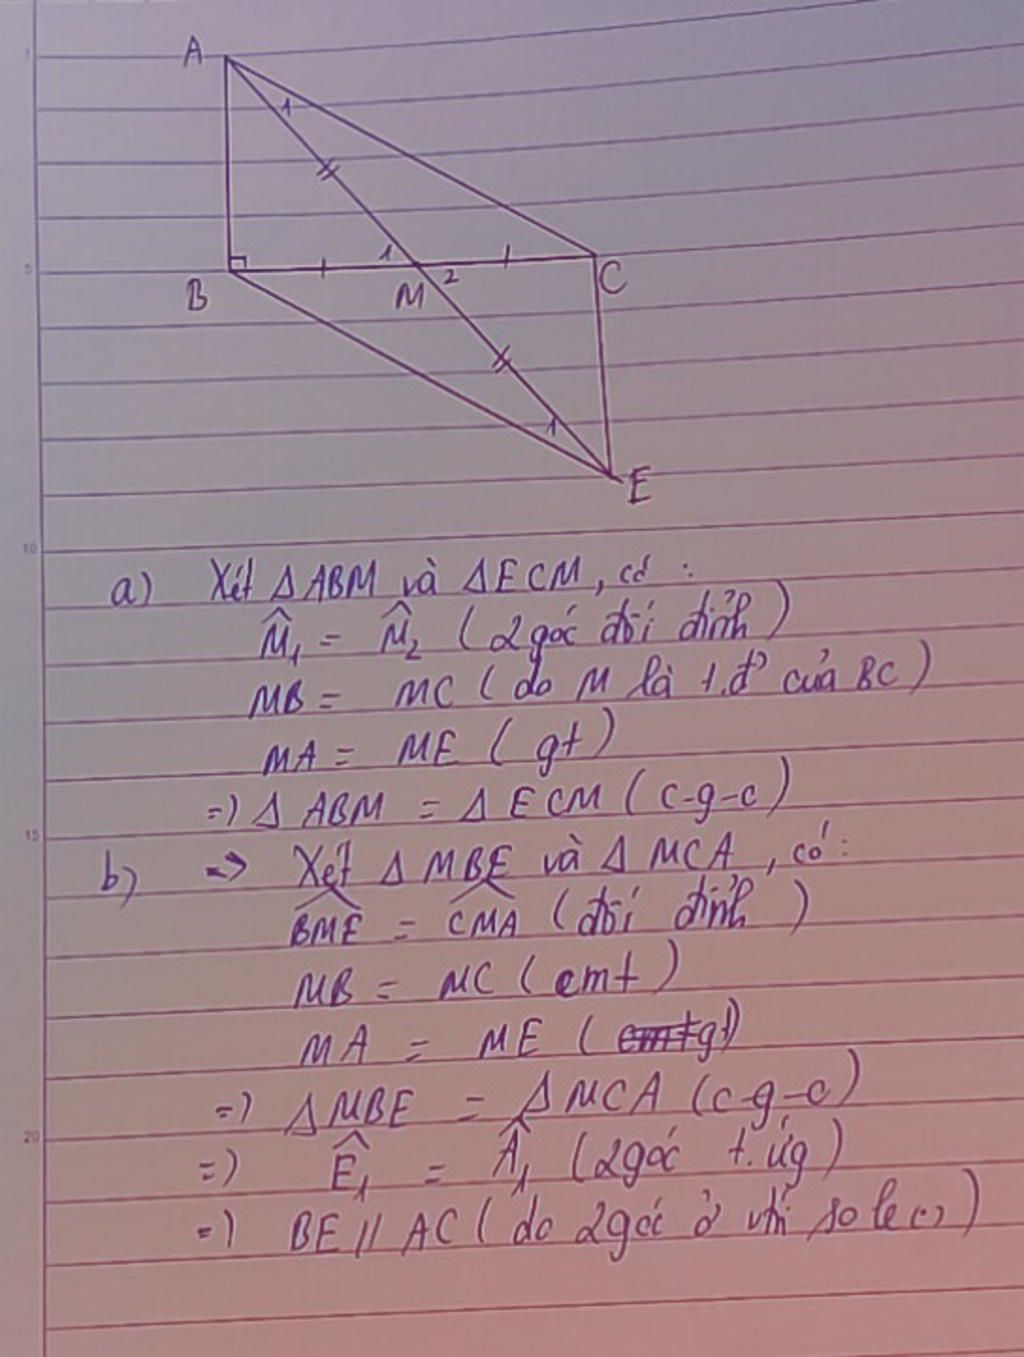 A
1
1
B
M
2
C
1
E
a) Xét Δ ABM và Δ ECM, có :
M̂₁ = M̂₂ ( 2 góc đối đỉnh )
MB = MC ( do M là t.đ' của BC )
MA = ME ( gt )
=) Δ ABM = Δ ECM ( c-g-c )
b) => Xét Δ MBE và Δ MCA , có :
BME = CMA ( đối đỉnh )
MB = MC ( cmt )
MA = ME ( gt )
=) Δ MBE = Δ MCA ( c-g-c )
=) Ê₁ = Â₁ ( 2 góc t.ứg )
=) BE // AC ( do 2 góc ở vtrí so le (..) )
5
10
15
20